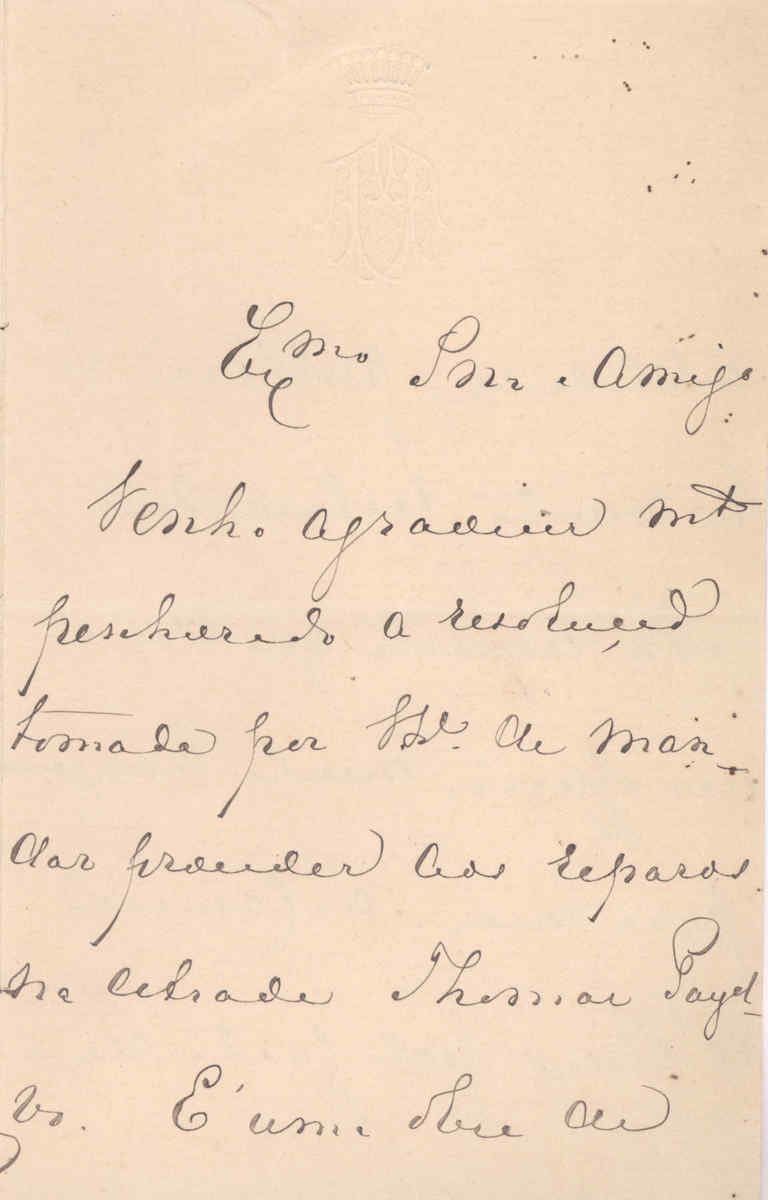 Ex.mo Snr e Amigo
Venho agradecer mt
penhorado a resolução
tomada por V. de man-
dar proceder aos reparos
na estrada Thomar
E' uma obra de